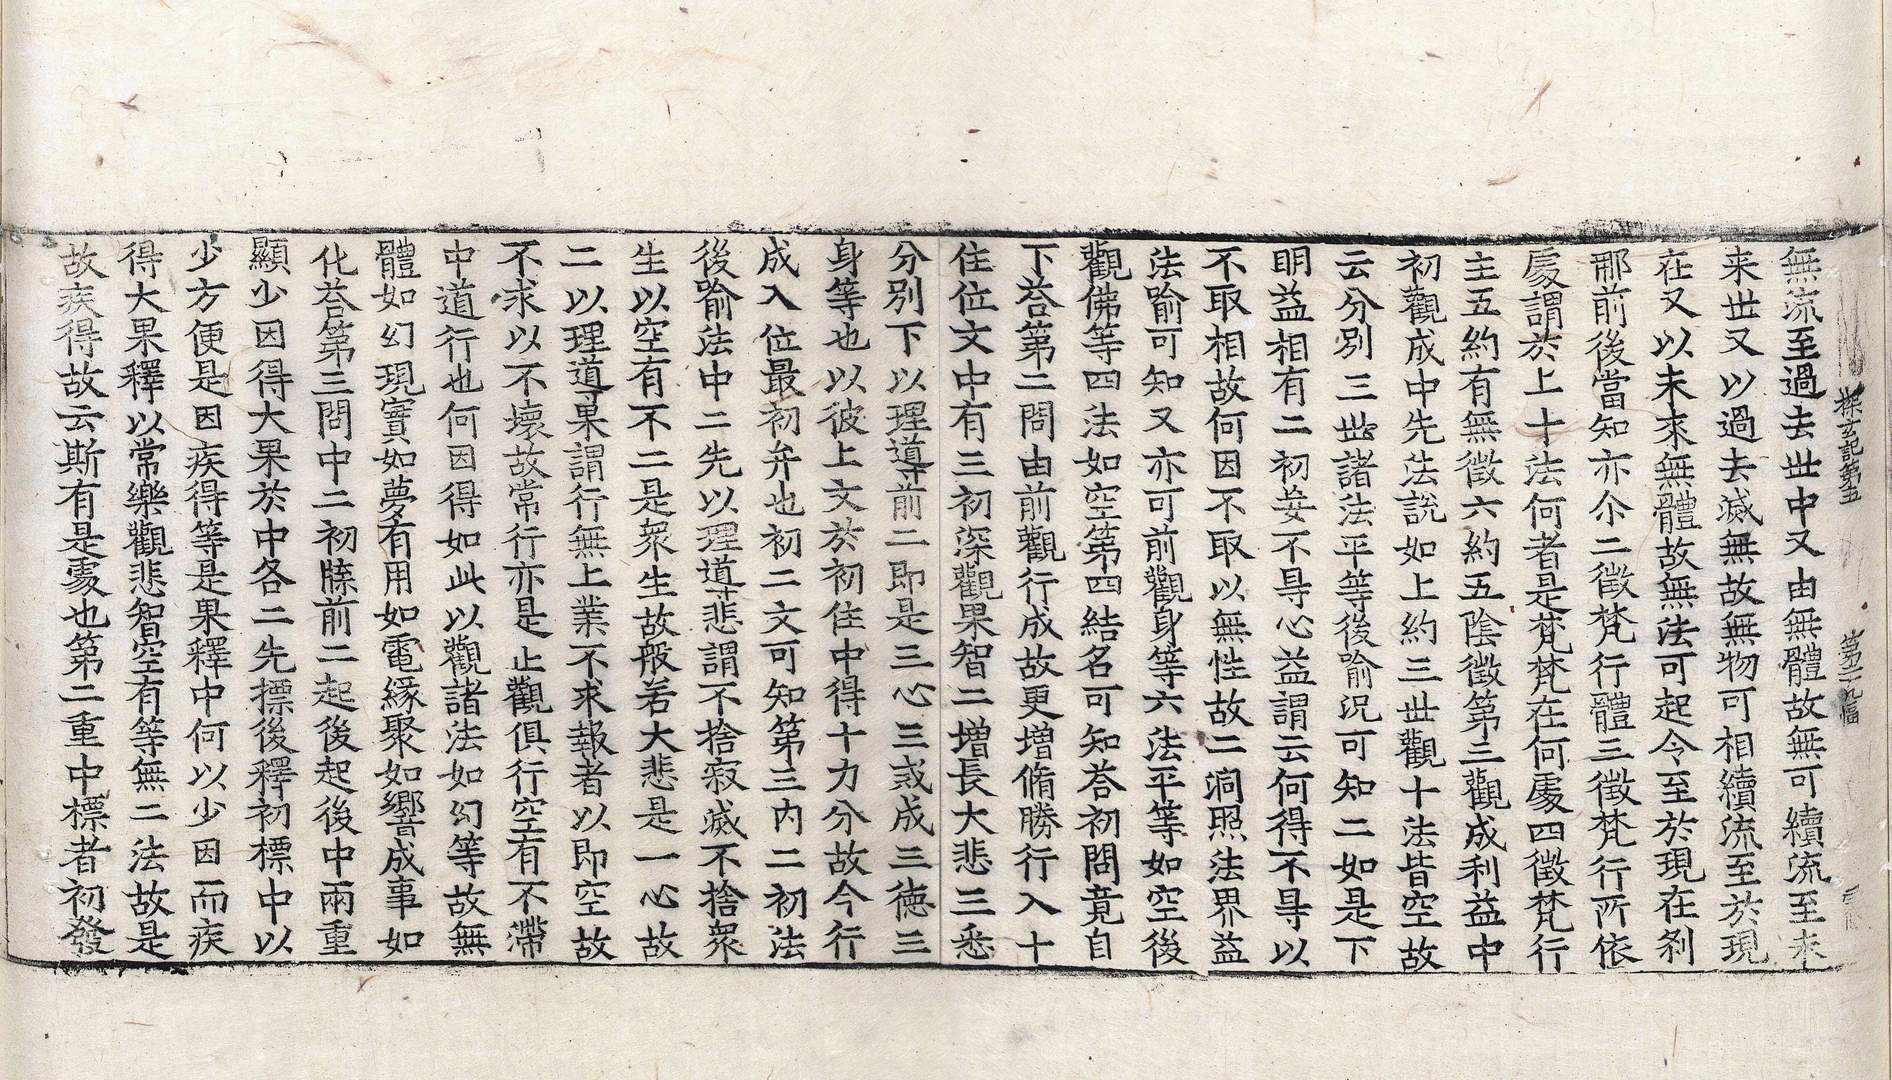 探玄記第五 第二十九幅
無流至過去世中又由無體故無可續流至未
来世又以過去滅無故無物可相續流至於現
在又以未來無體故無法可起令至於現在刹
那前後當知亦尒二徴梵行體三徴梵行所依
處謂於上十法何者是梵梵在何處四徴梵行
主五約有無徴六約五陰徴第三觀成利益中
初觀成中先法說如上約三世觀十法皆空故
云分別三世諸法平等後喻況可知二如是下
明益相有二初妄不㝵心益謂云何得不㝵以
不取相故何因不取以無性故二洞照法界益
法喻可知又亦可前觀身等六法平等如空後
觀佛等四法如空第四結名可知荅初問竟自
下荅第二問由前觀行成故更增脩勝行入十
住位文中有三初深觀果智二增長大悲三悉
分別下以理導前二即是三心三惑成三徳三
身等也以彼上文於初住中得十力分故今行
成入位最初弁也初二文可知第三内二初法
後喻法中二先以理導悲謂不捨寂滅不捨衆
生以空有不二是衆生故般若大悲是一心故
二以理導果謂行無上業不求報者以即空故
不求以不壞故常行亦是止觀俱行空有不滯
中道行也何因得如此以觀諸法如幻等故無
體如幻現實如夢有用如電緣聚如響成事如
化荅第三問中二初牒前二起後起後中兩重
顯少因得大果於中各二先摽後釋初標中以
少方便是因疾得等是果釋中何以少因而疾
得大果釋以常樂觀悲智空有等無二法故是
故疾得故云斯有是處也第二重中標者初發